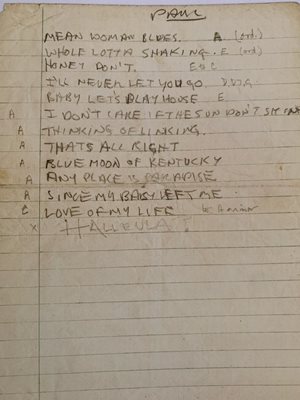 PAUL
MEAN WOMAN BLUES. A. (ord.)
WHOLE LOTTA SHAKING. E (ord)
HONEY DON'T. E & C
I'LL NEVER LET YOU GO
BABY LET'S PLAY HOUSE E
A I DON'T CARE IF THE SUN DON'T SHINE
A THINKING OF LINKING.
A THATS ALL RIGHT
A BLUE MOON OF KENTUCKY
A ANY PLACE IS PARADISE
A SINCE MY BABY LEFT ME
C LOVE OF MY LIFE to A minor
X HALLEULA !